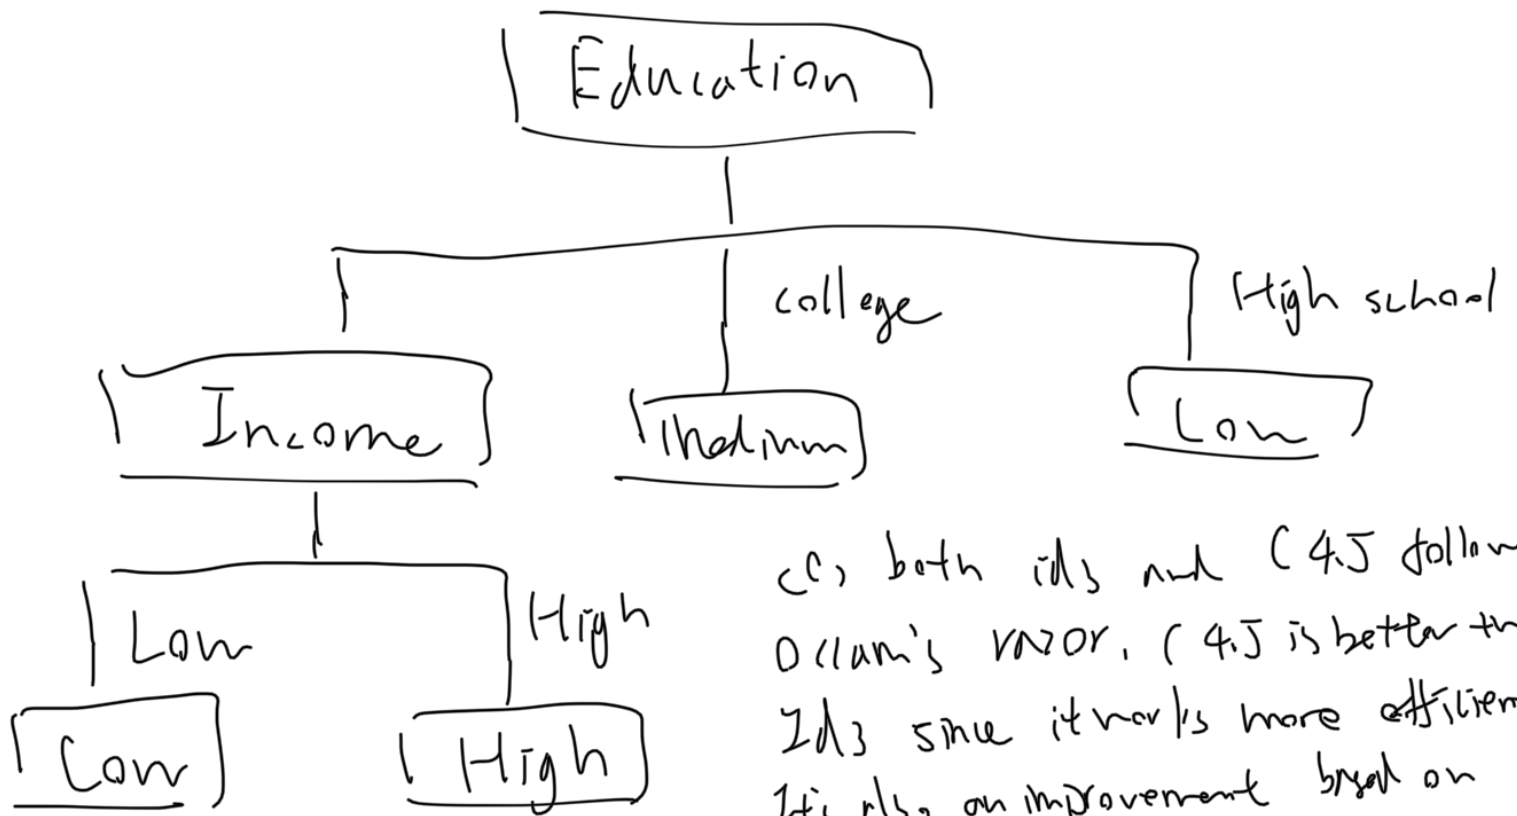 Education
college
High school
Income
Medium
Low
Low
High
Low
High
(C) both id3 and C4.5 follow
Occam's razor. C4.5 is better th
Id3 since it works more efficien
It's also an improvement based on